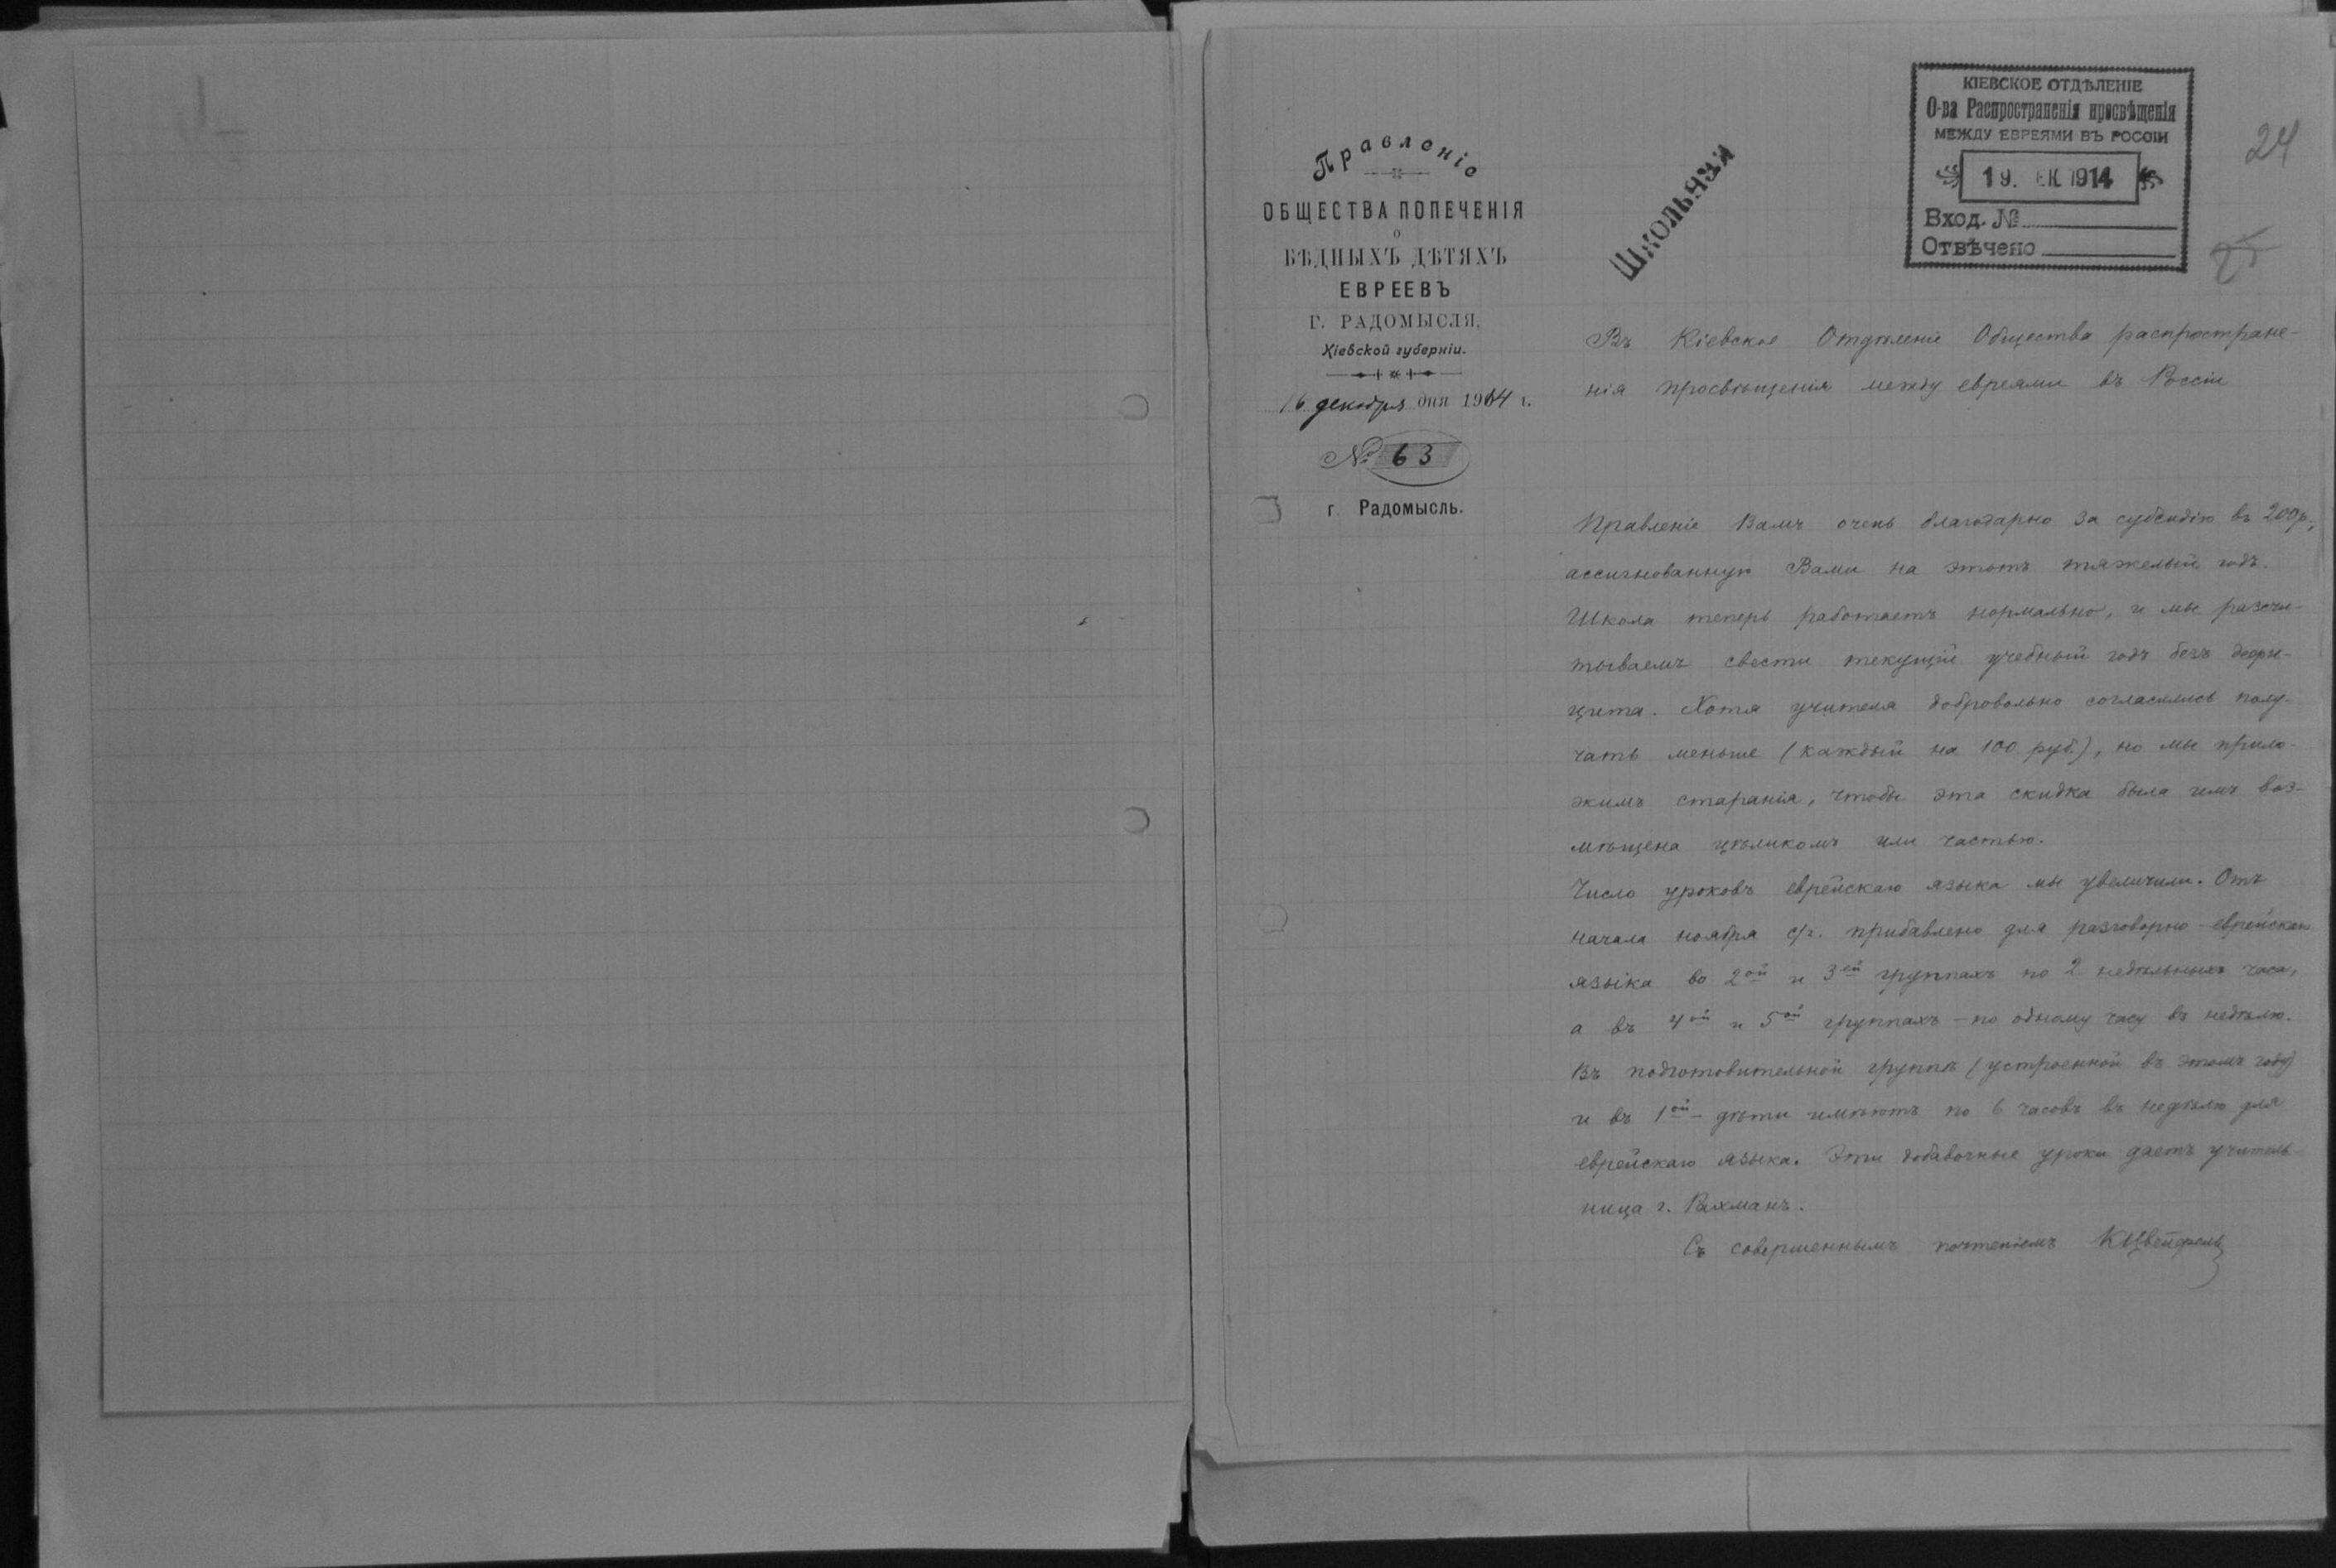 Правленіе
ОБЩЕСТВА ПОПЕЧЕНІЯ
о
БѢДНЫХЪ ДѢТЯХЪ
ЕВРЕЕВЪ
Г. РАДОМЫСЛЯ,
Кіевской губерніи.
16 декабря дня 1914 г.
№ 63
г. Радомысль.
Школьная
КІЕВСКОЕ ОТДѢЛЕНІЕ
О-ва Распространенія просвѣщенія
МЕЖДУ ЕВРЕЯМИ ВЪ РОССІИ
19. ЕК. 1914
Вход. №
Отвѣчено
24
25
Въ Кіевское Отдѣленіе Общества распростране-
нія просвѣщенія между евреями въ Россіи
Правленіе Вамъ очень благодарно за субсидію въ 200р.,
ассигнованную Вами на этотъ тяжелый годъ.
Школа теперь работаетъ нормально, и мы разсчи-
тываемъ свести текущій учебный годъ безъ дефи-
цита. Хотя учителя добровольно согласились полу-
чать меньше (каждый на 100 руб.), но мы прило-
жимъ старанія, чтобы эта скидка была имъ воз-
мѣщена цѣликомъ или частью.
Число уроковъ еврейскаго языка мы увеличили. Отъ
начала ноября с/г. прибавлено для разговорно-еврейскаго
языка во 2ой и 3ей группахъ по 2 недѣльныхъ часа,
а въ 4ой и 5ой группахъ – по одному часу въ недѣлю.
Въ подготовительной группѣ (устроенной въ этомъ году)
и въ 1ой – дѣти имѣютъ по 6 часовъ въ недѣлю для
еврейскаго языка. Эти добавочные уроки даетъ учитель-
ница г. Рахманъ.
Съ совершеннымъ почтеніемъ КЦвейфель